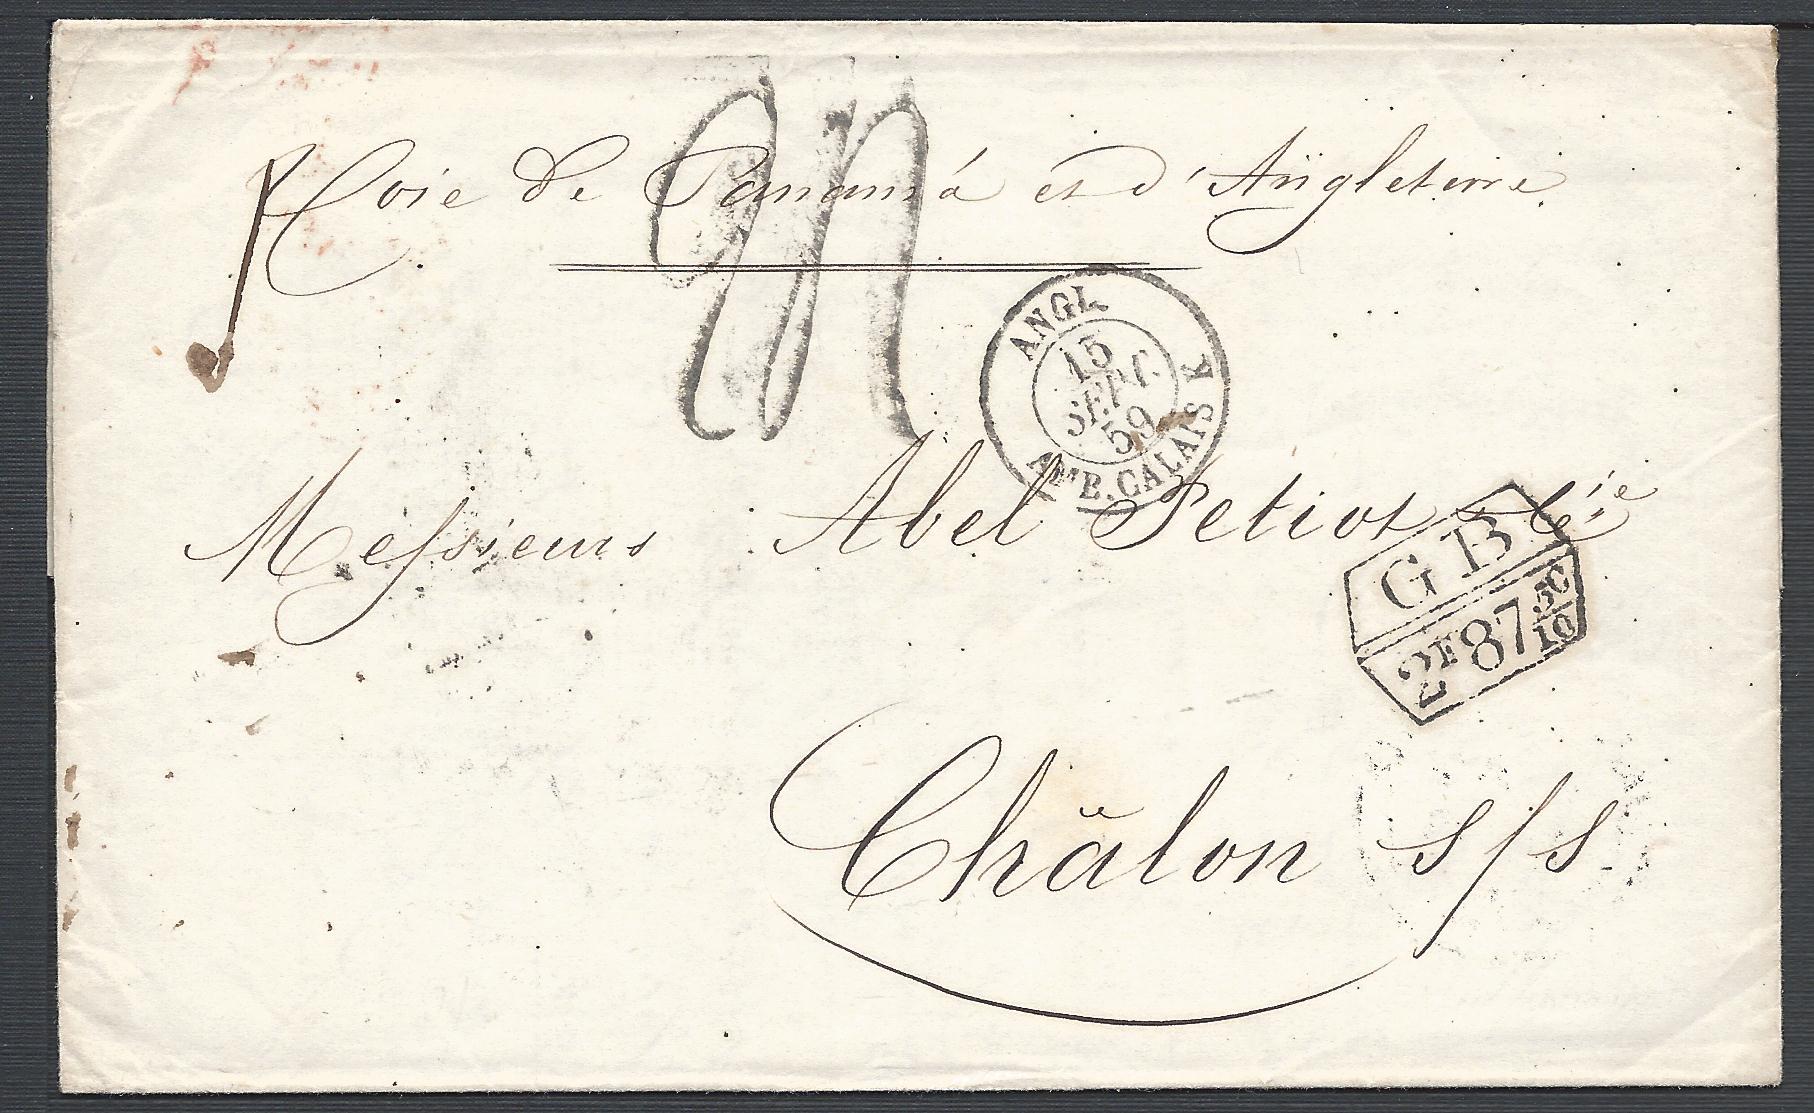 Voie de Panamá et d'Angleterre
ANGL.
15
SEPT.
59
AMB. CALAIS K
Messieurs Abel Petiot & Cie
GB
2F87 50C/10
Châlon s/s